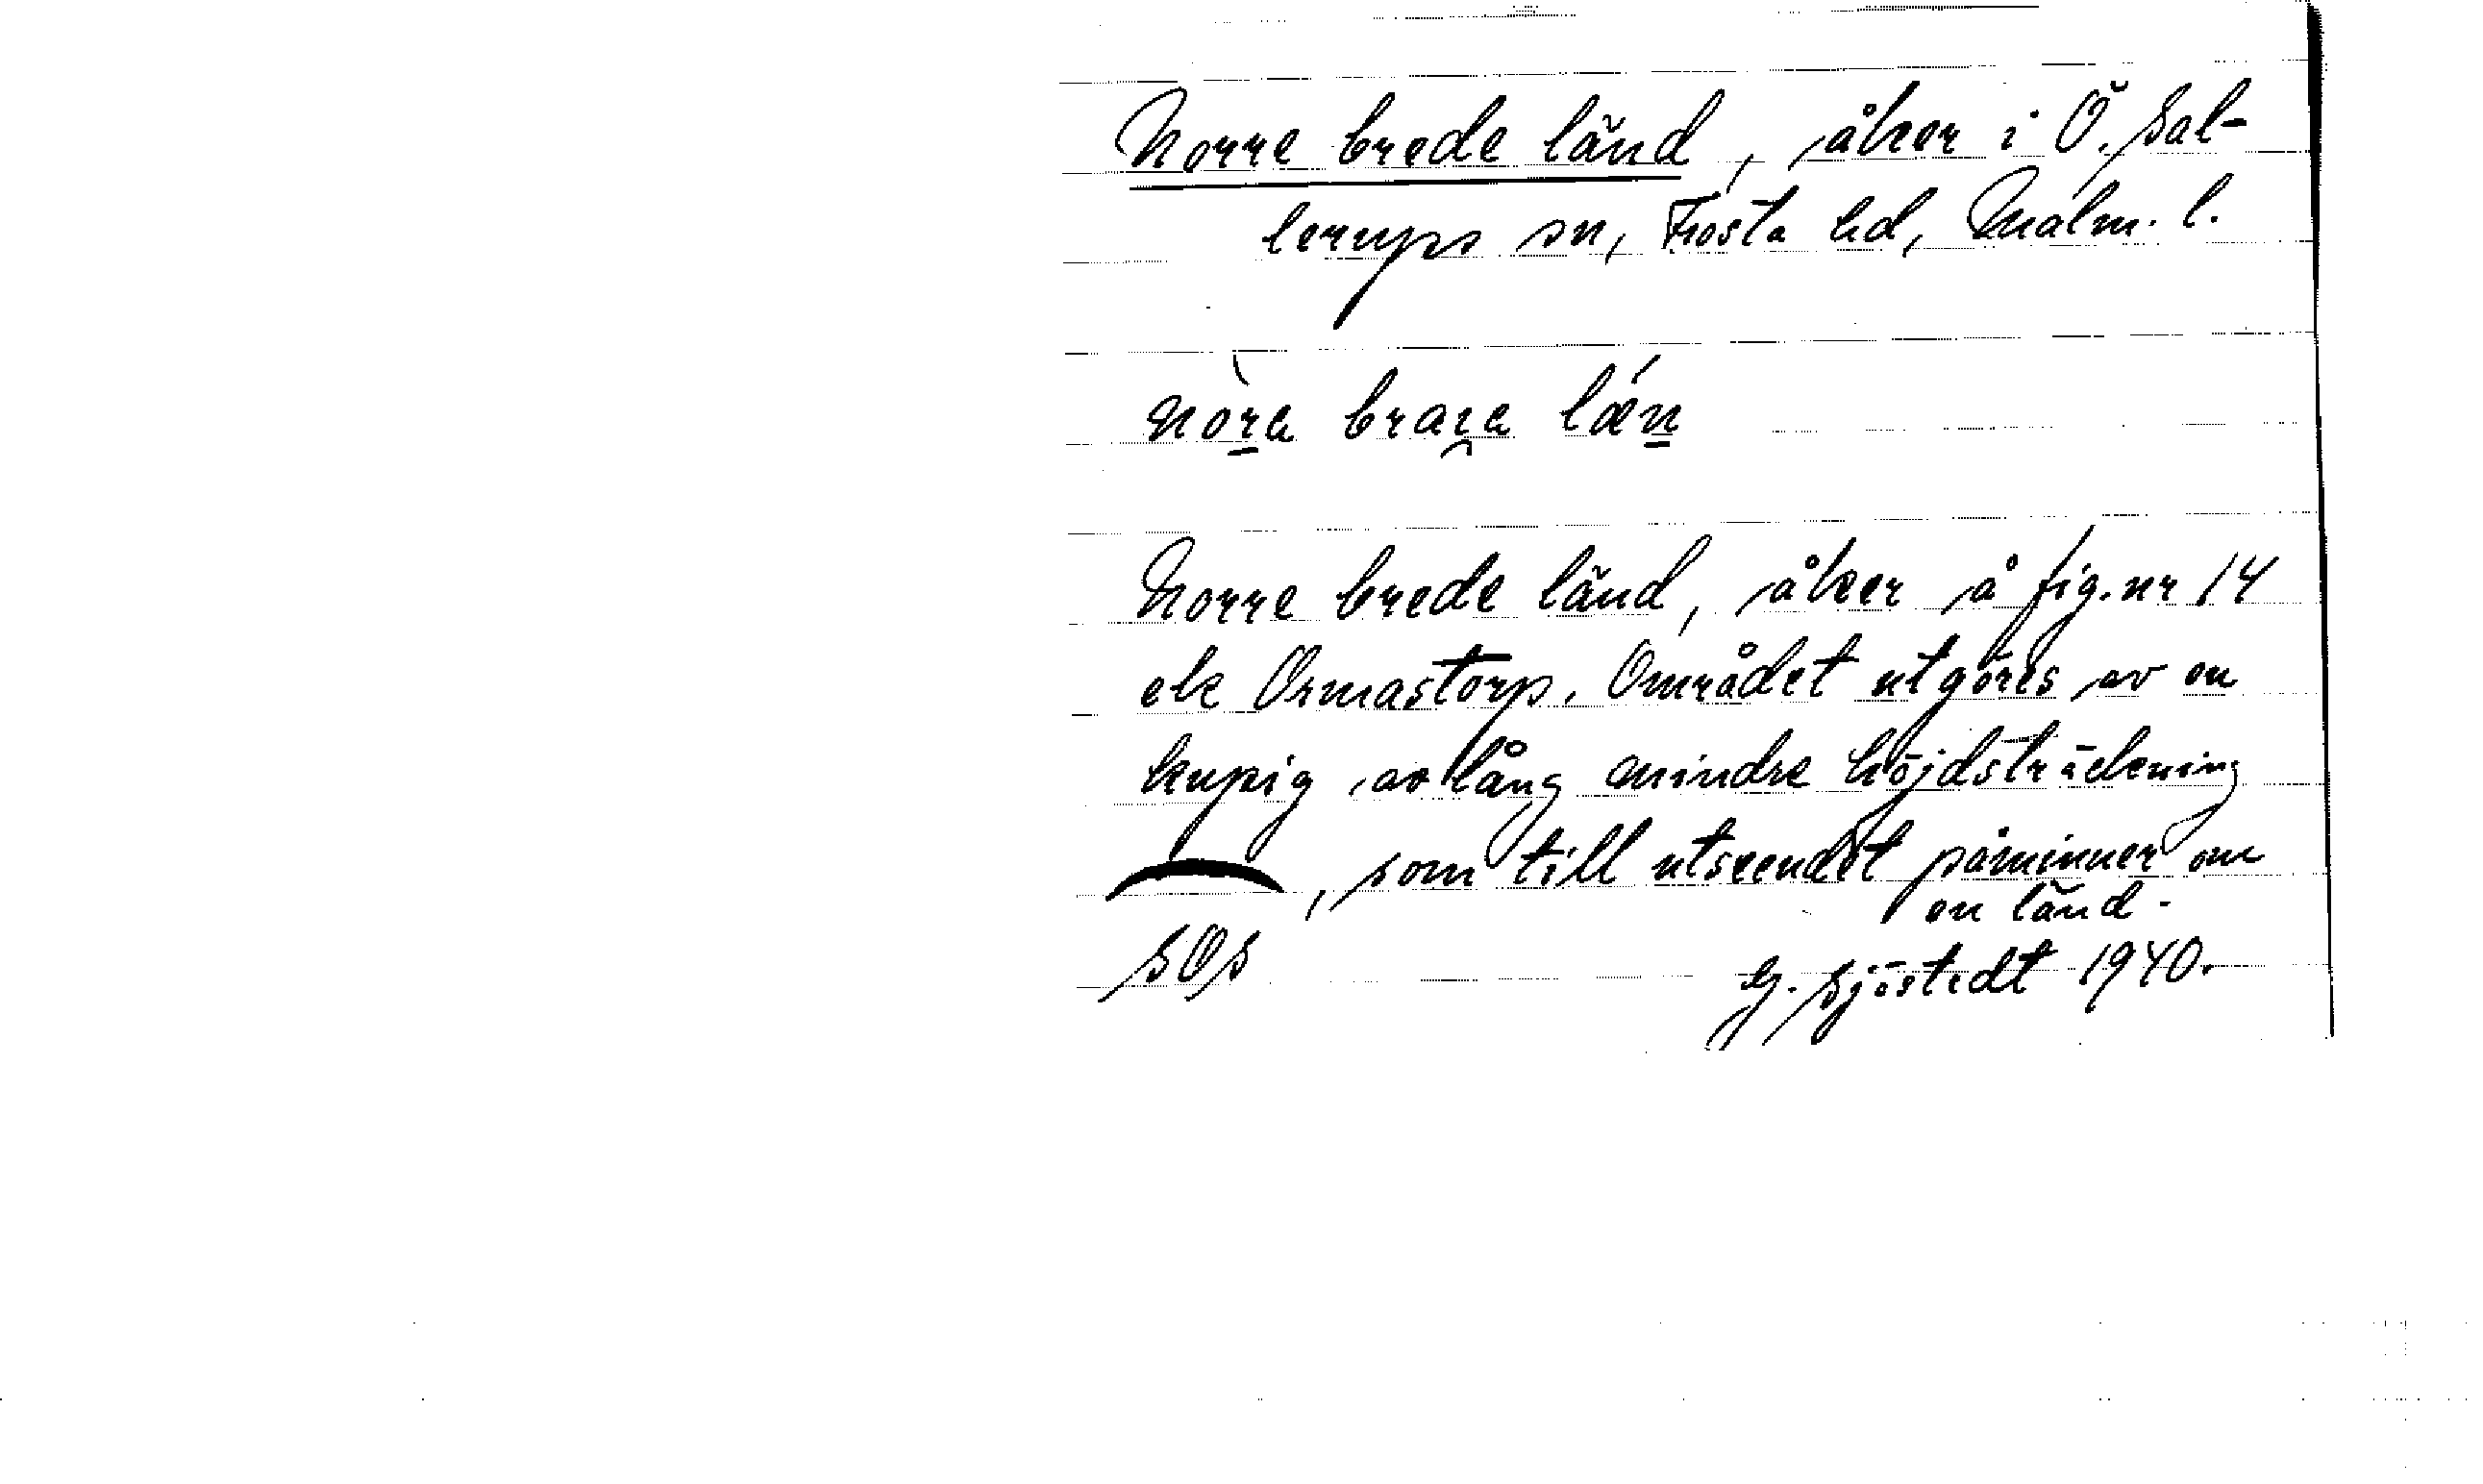 Norre brede länd, åker i Ö. Sal-
lerups sn, Frosta hd, Malm. l.
nòra braza lǽn
Norre brede länd, åker å fig. nr 14
ek Ormastorp. Området utgöres av en
kupig avlång mindre höjdsträckning
, som till utseendet påminner om
en länd.
SOS
G. Sjöstedt 1940.